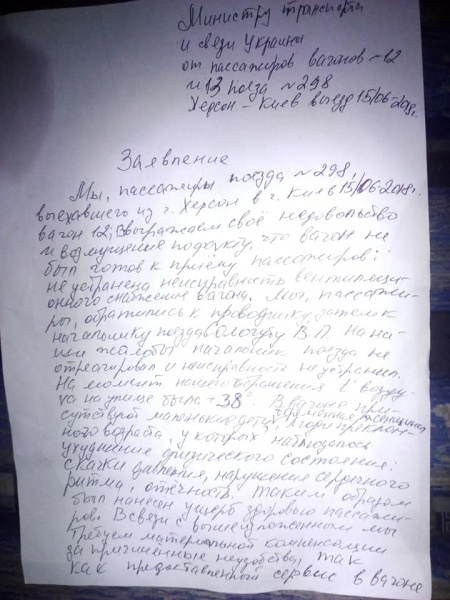 Министру транспорта
и связи Украины
от пассажиров вагонов №12
и 13 поезда №298
Херсон - Киев выезд 15/06-2018г.
Заявление
Мы, пассажиры поезда №298,
выехавшего из г. Херсон в г. Киев 15/06-2018г.
вагон 12, 13 выражаем своё недовольство
и возмущение по факту, что вагон не
был готов к приёму пассажиров:
не устранена неисправность вентиляци-
онного снабжение вагона. Мы, пассажи-
ры, обратились к проводнику затем к
начальнику поезда В.П. На на-
ши жалобы начальник поезда не
отреагировал и неисправность не устранил.
На момент нашего обращения t° возду-
ха на улице была +38°. В вагоне при-
сутствуют маленькие дети, беременная женщина
и люди преклон-
ного возраста, у которых наблюдалось
ухудшение физического состояния:
скачки давления, нарушение сердечного
ритма, отёчность. Таким образом
был нанесен ущерб здоровью пассажи-
ров. В связи с вышеизложенным мы
требуем материальной компенсации
за причиненные неудобства, так
как предоставленный сервис в вагоне